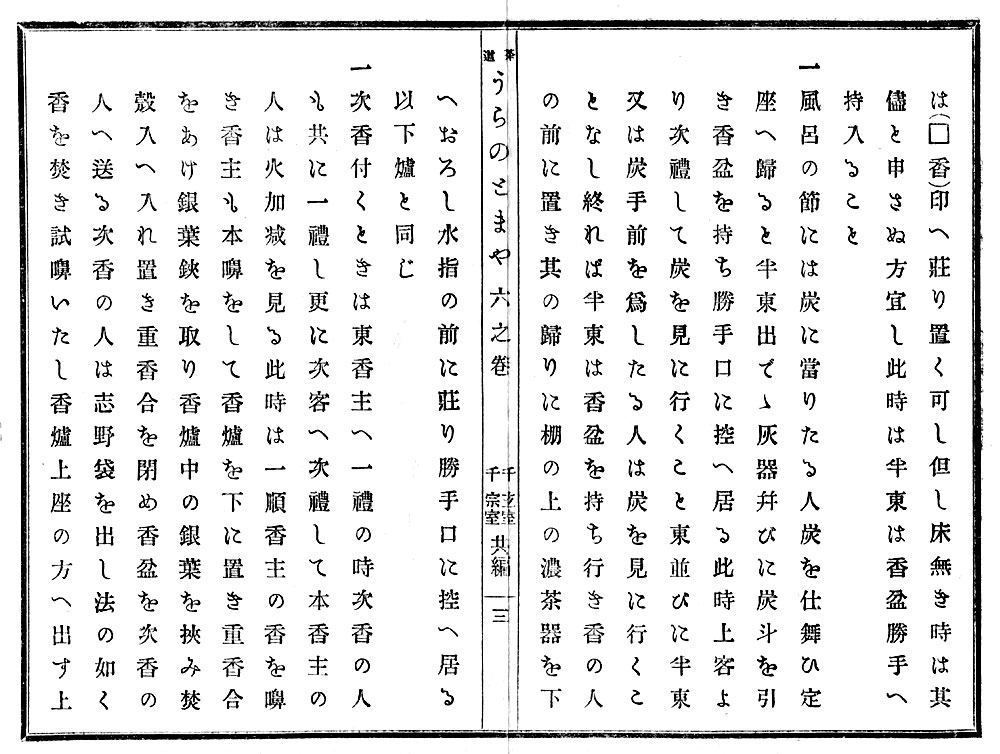 は(□香)印へ莊り置く可し但し床無き時は其
儘と申さぬ方宜し此時は半東は香盆勝手へ
持入ること
一風呂の節には炭に當りたる人炭を仕舞ひ定
座へ歸ると半東出でゝ灰器幷びに炭斗を引
き香盆を持ち勝手口に控へ居る此時上客よ
り次禮して炭を見に行くこと東並びに半東
又は炭手前を爲したる人は炭を見に行くこ
となし終れば半東は香盆を持ち行き香の人
の前に置き其の歸りに棚の上の濃茶器を下
茶道
うらのとまや 六之卷
千玄室
千宗室
共編
三
へおろし水指の前に莊り勝手口に控へ居る
以下爐と同じ
一次香付くときは東香主へ一禮の時次香の人
も共に一禮し更に次客へ次禮して本香主の
人は火加減を見る此時は一順香主の香を嗅
き香主も本嗅をして香爐を下に置き重香合
をあけ銀葉鋏を取り香爐中の銀葉を挾み焚
殼入へ入れ置き重香合を閉め香盆を次香の
人へ送る次香の人は志野袋を出し法の如く
香を焚き試嗅いたし香爐上座の方へ出す上